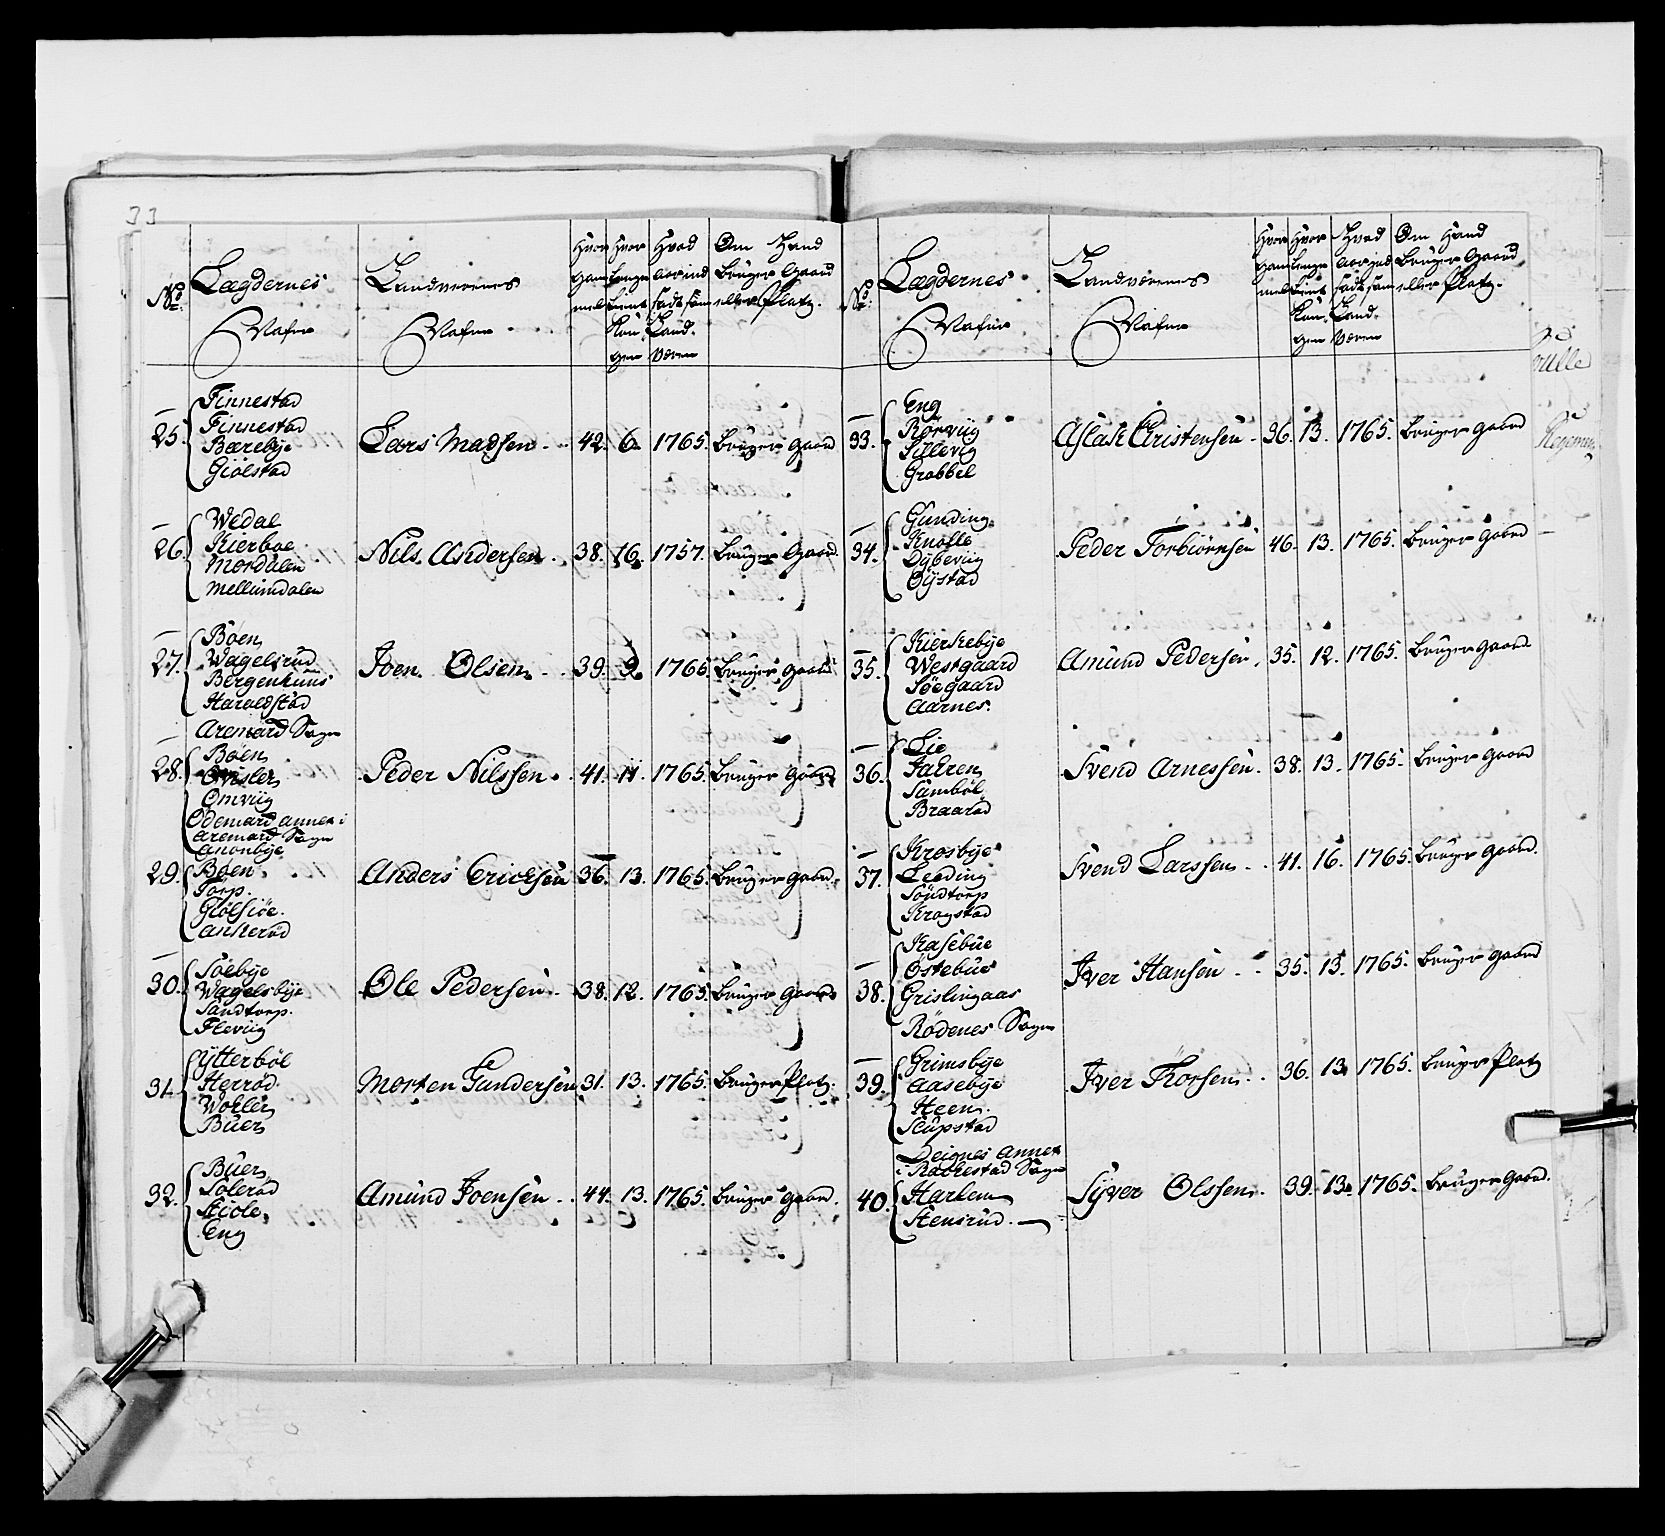 33
No:
Lægdernes
Nafne
Landverenes
Nafne
Hvor
gam
mel
Hvor
lenge
tient
Kon
gen
Hvad
Aar ind
sadt som
Land.
Væren
Om Hand
bruger Gaard
eller Platz.
25.
Finnestad
Finnestad
Bærebÿe
Giolstad
Lars Madsen 42. 6. 1765. bruger gaard
26.
Wedal
Kierboe
Mordalen
Mellumdalen
Nils Andersen 38. 16. 1757. bruger Gaard.
27.
Boen
Wagelsrud
Bergenhuus
Haraldstad
Joen Olsen 39. 9. 1765 bruger gaard
Aremard Sogn
28.
Boen
Omviig
Peder Nilssen 41. 11. 1765. bruger gaard
Ödemard annex i
Aremard Sogn
29.
Anonbÿe
Boen
Torp.
Giölsiöe.
Ankeröd
Anders Ericksen 36. 13. 1765. bruger gaard.
30.
Söebÿe
Wagelsbÿe
Sandtorp.
Fleviig
Ole Pedersen 38. 12. 1765. bruger gaard
31.
Ÿtterböl
Herröd
Buer
Morten Gundersen 31. 13. 1765. bruger Platz.
32.
Buer
Soleröd
Kiole
Eng
Amund Joensen 44. 13. 1765. bruger gaard.
No:
Lægdernes
Nafne
Landverenes
Nafne
Hvor
gam
mel
Hvor
lenge
tient
Kon
gen
Hvad
Aar ind
sadt som
Land.
Væren
Om Hand
bruger Gaard
eller Platz.
33.
Eng
Rörviig
Sillevig
Grobbel
Aslak Christensen 36. 13. 1765. bruger gaard
34.
Gunding
Knolle
Dÿbeviig
Öÿstad
Peder Torbiörnsen 46. 13. 1765. bruger gaard
35.
Kierkebÿe
Westgaard
Söegaard
Aarnes.
Amund Pedersen. 35. 12. 1765. bruger gaard
36.
Lie
Jaeren
Samböl
Braaröd
Svend Arnessen. 38. 13. 1765. bruger gaard
37.
Krosbÿe
Leeding
Söndtorp
Krogstad
Svend Larssen 41. 16. 1765. bruger gaard.
38.
Kasebue
Östebue
Grislingaas
Iver Hansen 35. 15. 1765. bruger gaard
Rödenes Sogn
39.
Grimsbÿe
Aasebÿe
Heen.
Slupstad
Iver Thorsen 36. 13. 1765. bruger Platz
Deignes Annex
i Rackestad Sogn
40.
Harlem
Stensrud.
Sÿver Olssen. 39. 13. 1765. bruger gaard.
rulle
Regemen